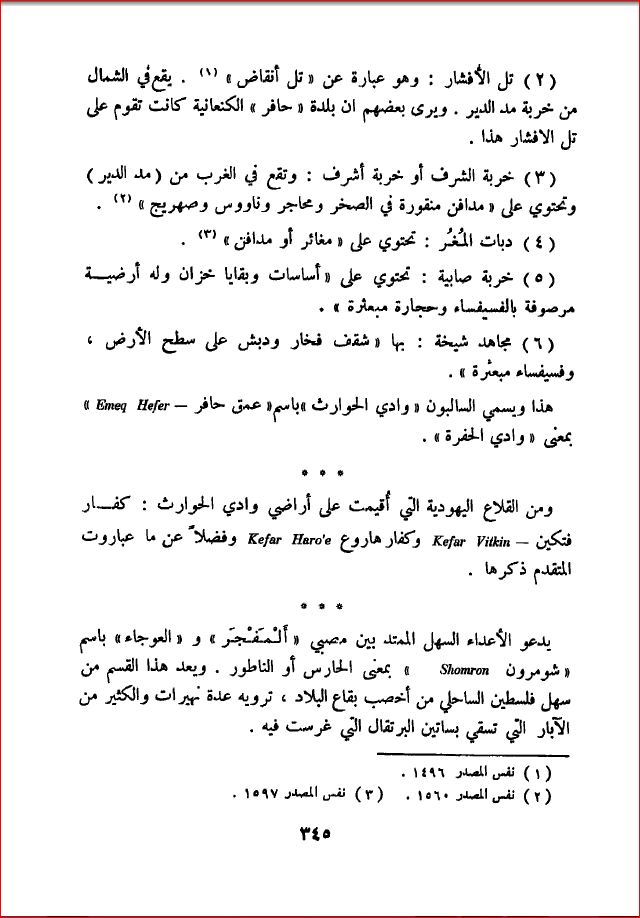 (٢) تل الأفشار : وهو عبارة عن « تل أنقاض » (١) . يقع في الشمال
من خربة مد الدير . ويرى بعضهم ان بلدة « حافر » الكنعانية كانت تقوم على
تل الافشار هذا .
(٣) خربة الشرف أو خربة أشرف : وتقع في الغرب من (مد الدير)
وتحتوي على « مدافن منقورة في الصخر ومحاجر وناووس وصهريج » (٢) .
(٤) دبات المُغُر : تحتوي على « مغائر أو مدافن » (٣) .
(٥) خربة صابية : تحتوي على « أساسات وبقايا خزان وله أرضيـــة
مرصوفة بالفسيفساء وحجارة مبعثرة » .
(٦) مجاهد شيخة : بها « شقف فخار ودبش على سطح الأرض ،
وفسيفساء مبعثرة » .
هذا ويسمي السالبون « وادي الحوارث » باسم « عمق حافر — Emeq Hefer »
بمعنى « وادي الحفرة » .
* * *
ومن القلاع اليهودية التي أُقيمت على أراضي وادي الحوارث : كفــار
فتكين — Kefar Vitkin وكفار هاروع Kefar Haro'e وفضلاً عن ما عباروت
المتقدم ذكرها .
* * *
يدعو الأعداء السهل الممتد بين مصبي « أَلْمَفْجَر » و « العوجاء » باسم
« شومرون Shomron » بمعنى الحارس أو الناطور . ويعد هذا القسم من
سهل فلسطين الساحلي من أخصب بقاع البلاد ، ترويه عدة نهيرات والكثير من
الآبار التي تسقي بساتين البرتقال التي غرست فيه .
(١) نفس المصدر ١٤٩٦ .
(٢) نفس المصدر ١٥٦٠ . (٣) نفس المصدر ١٥٩٧ .
٣٤٥